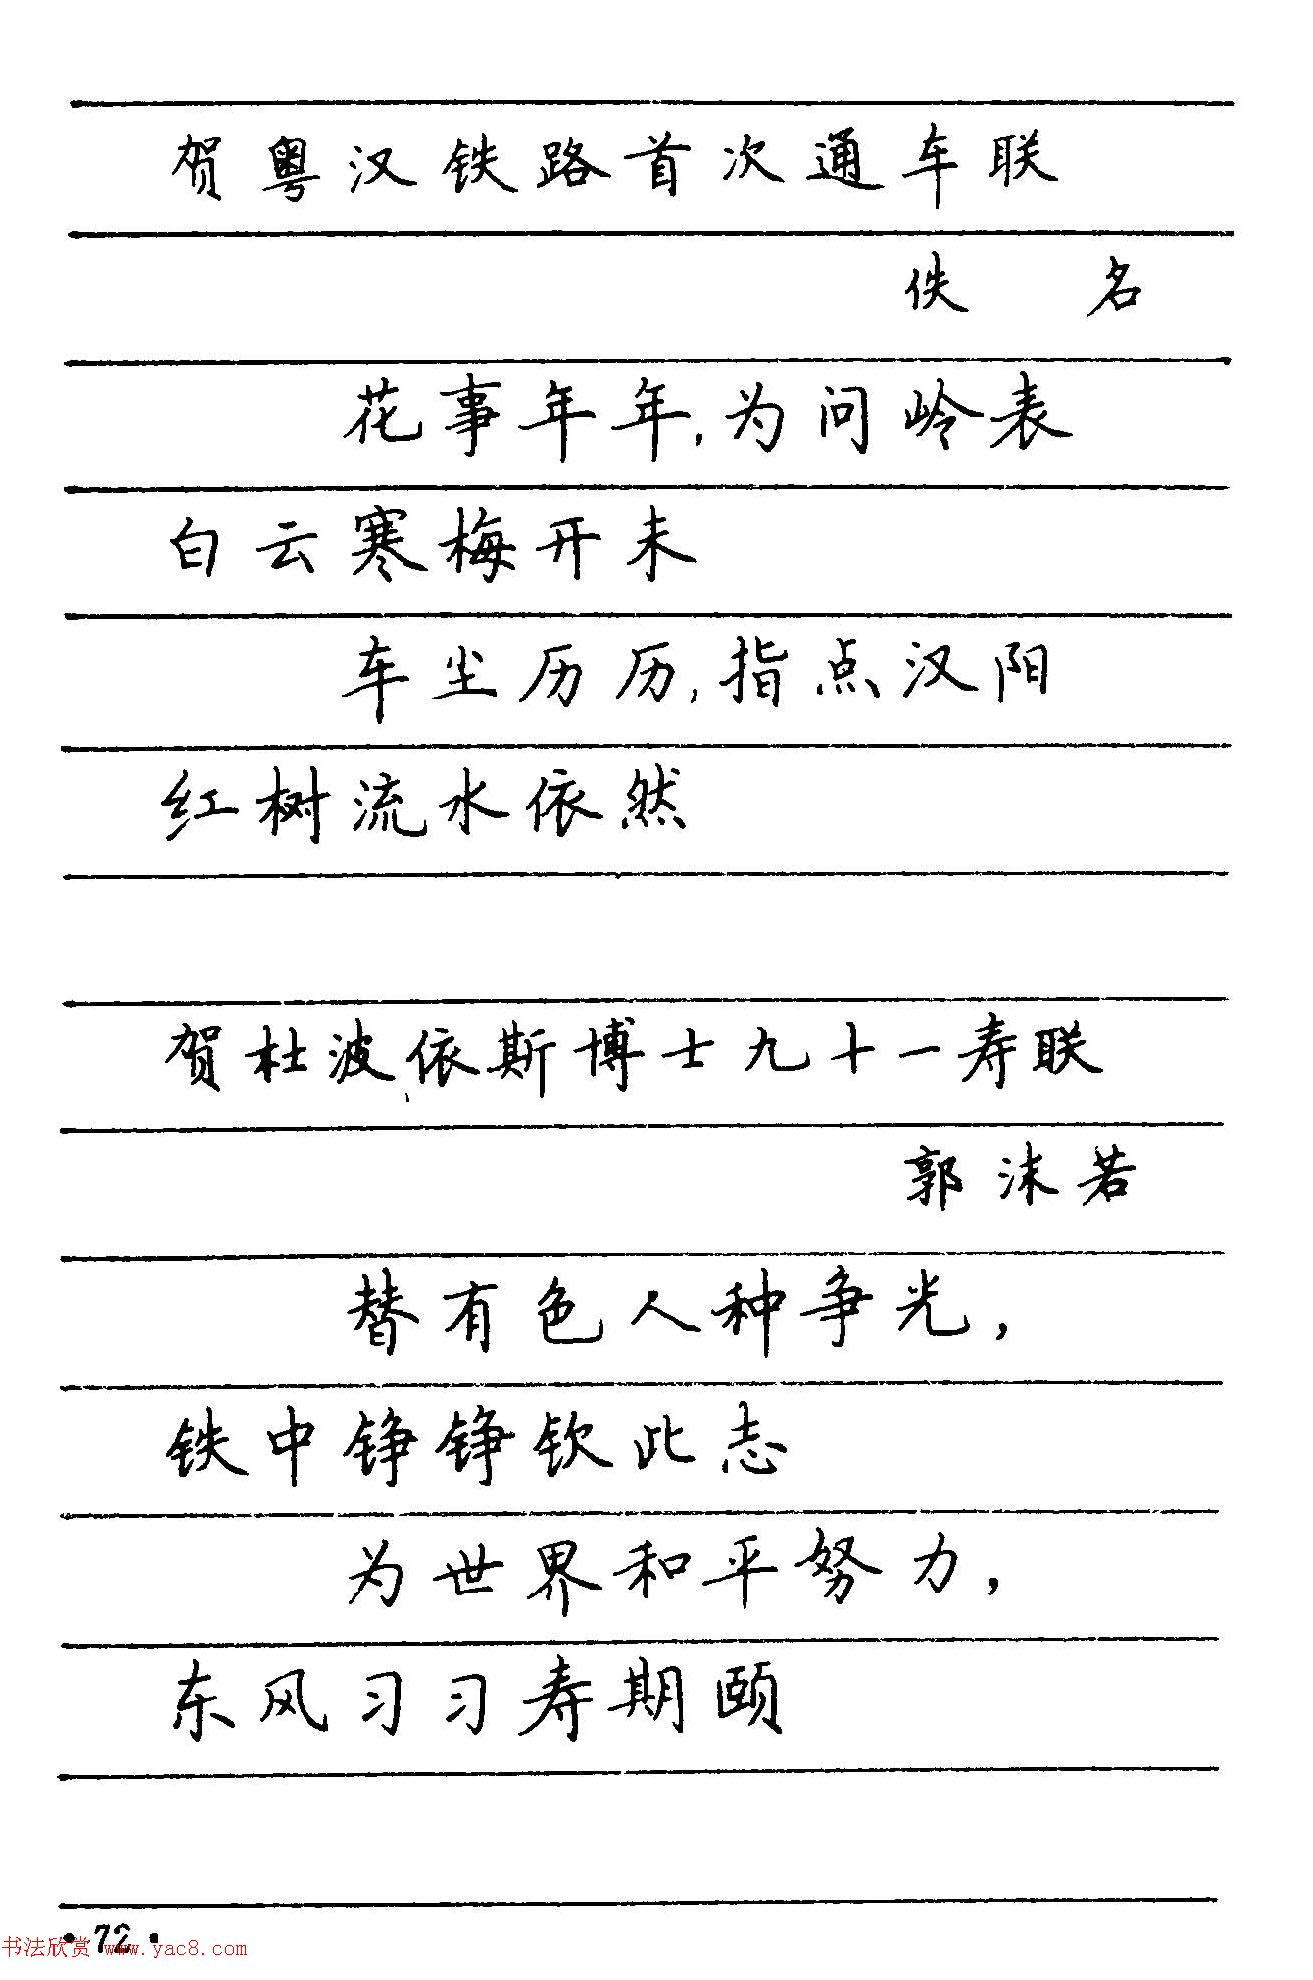 贺粤汉铁路首次通车联
佚 名
花事年年,为问岭表
白云寒梅开未
车尘历历,指点汉阳
红树流水依然
贺杜波依斯博士九十一寿联
郭沫若
替有色人种争光,
铁中铮铮钦此志
为世界和平努力,
东风习习寿期颐
·72·
书法欣赏 www.yac8.com